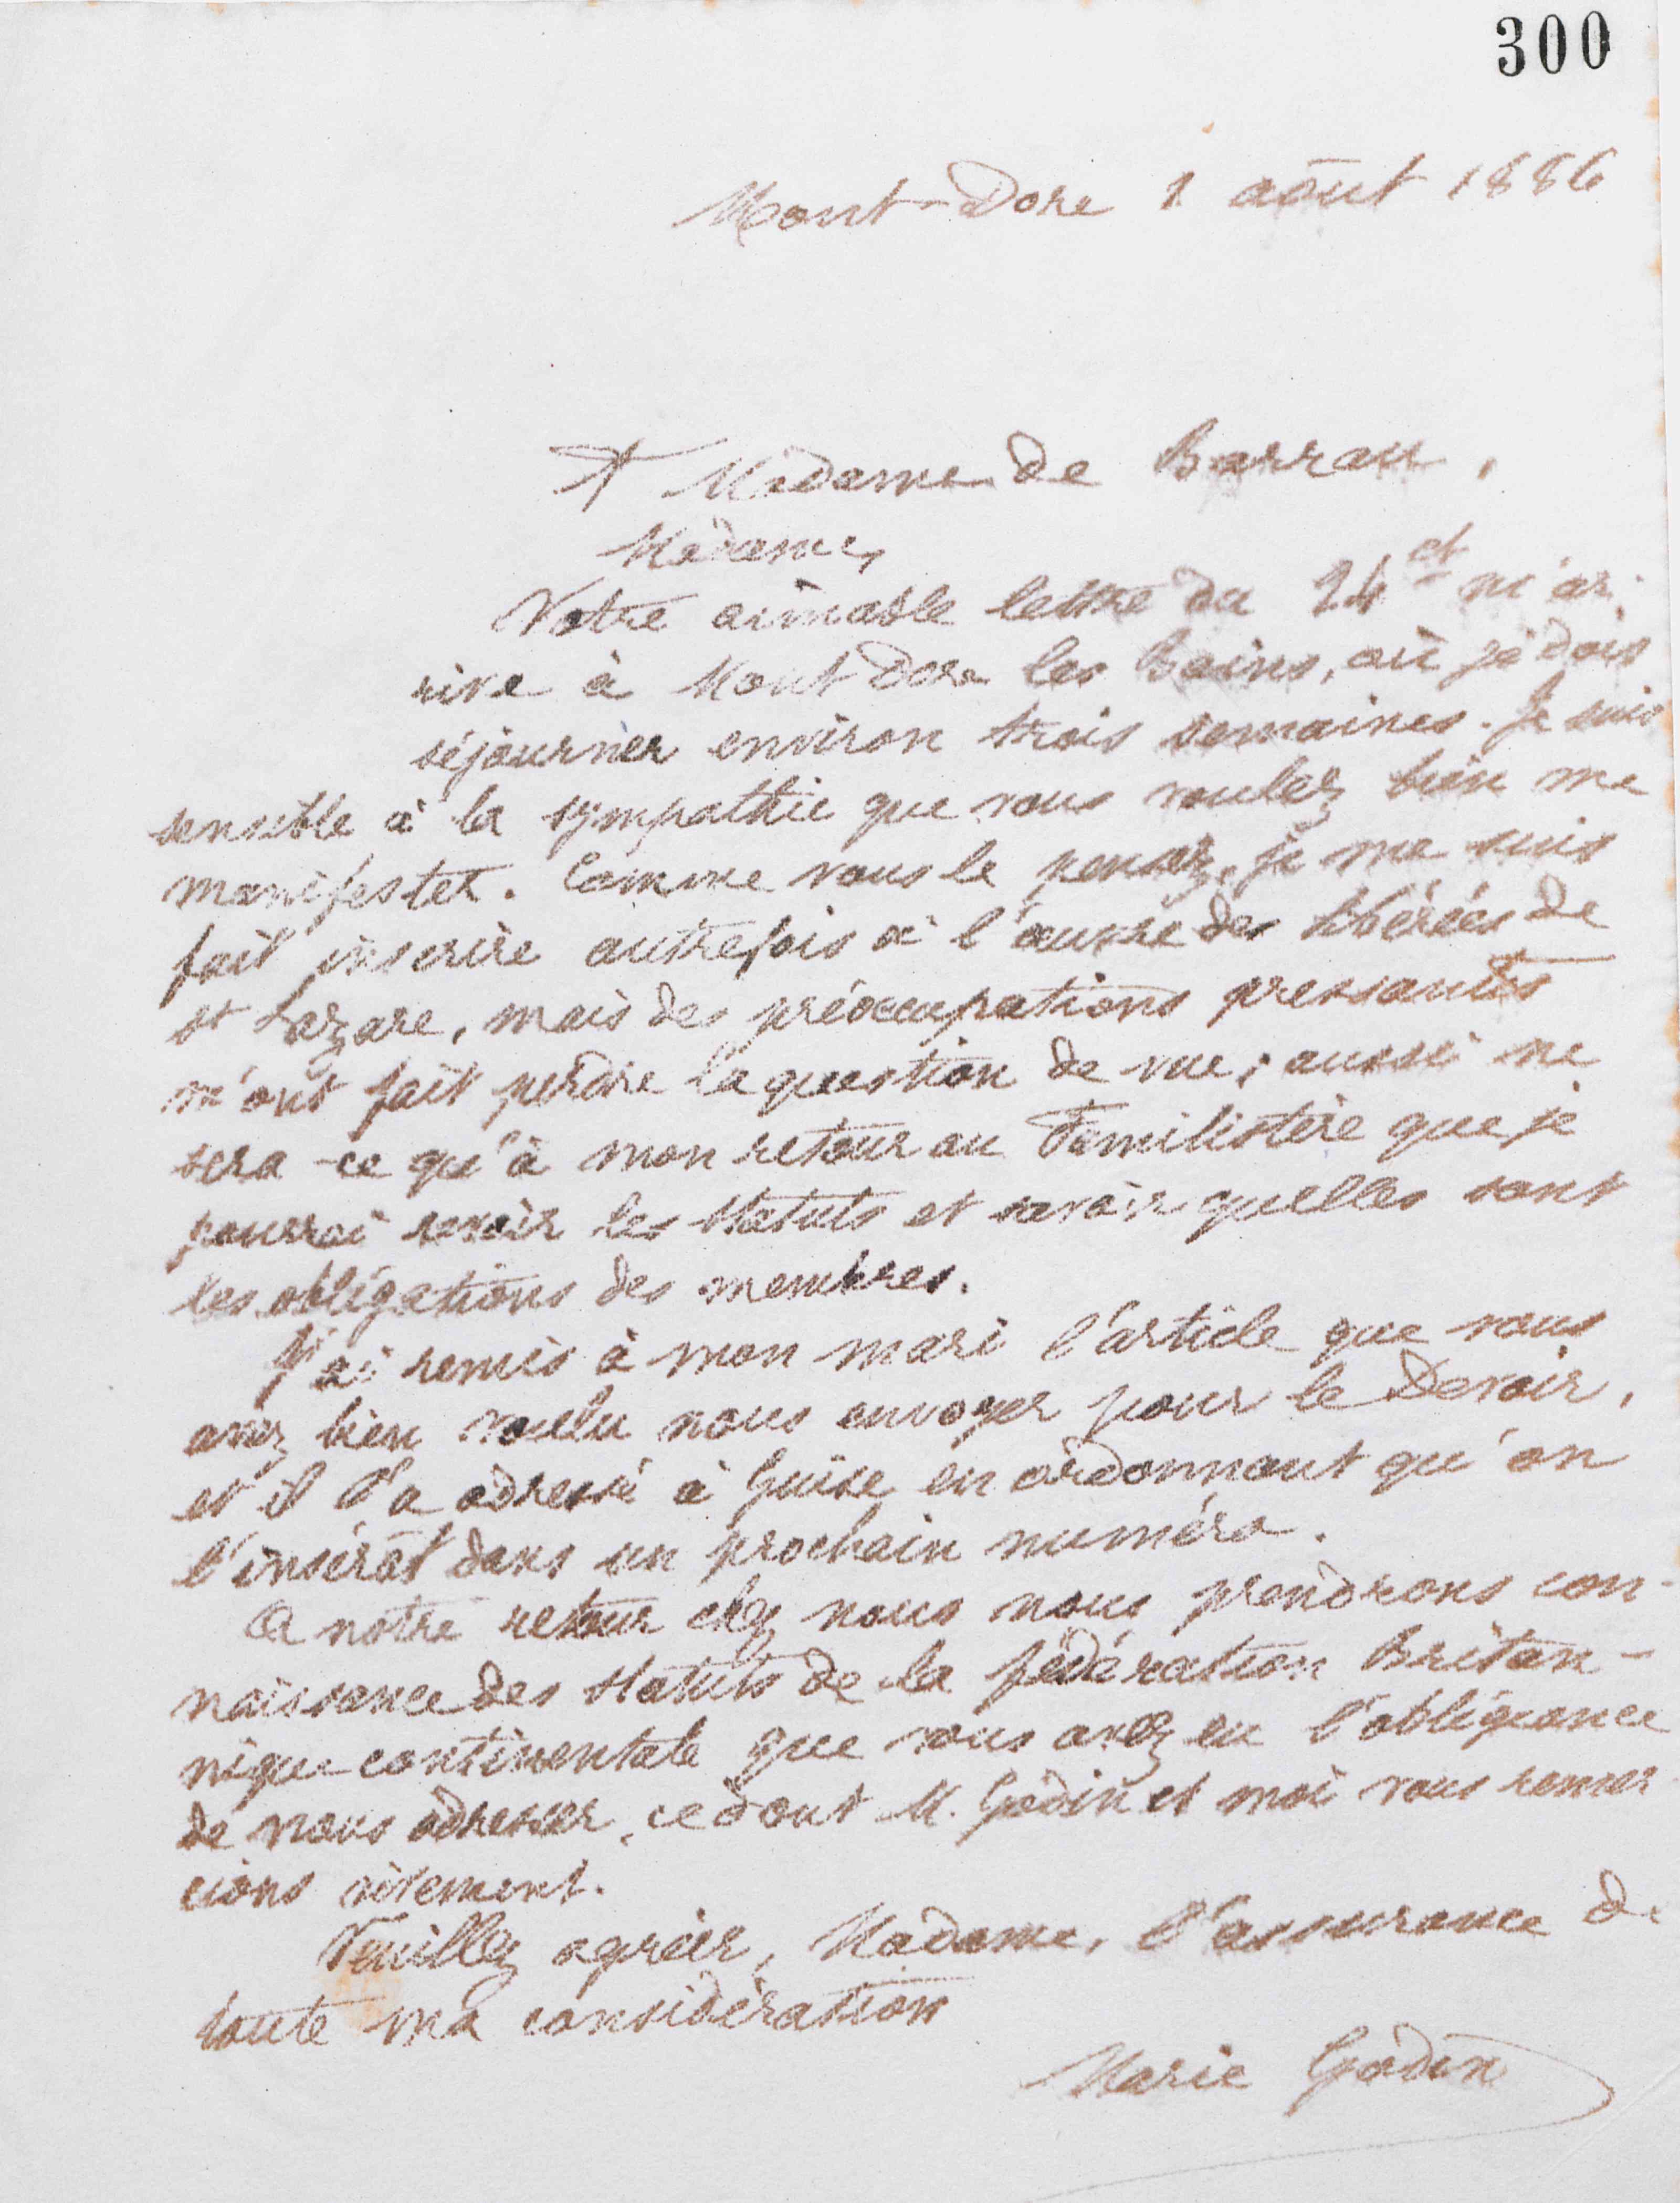 300
Mont-Dore 1 août 1886
A Madame de Barrau,
Madame,
Votre aimable lettre du 24 ct m'ar-
rive à Mont Dore les Bains, où je dois
séjourner environ trois semaines. Je suis
sensible à la sympathie que vous voulez bien me
manifester. Comme vous le pensez, je me suis
fait inscrire autrefois à l'œuvre des libérées de
St Lazare, mais des préoccupations pressantes
m'ont fait perdre la question de vue; aussi ne
sera-ce qu'à mon retour au Familistère que je
pourrai revoir les statuts et savoir quelles sont
les obligations des membres.
J'ai remis à mon mari l'article que vous
avez bien voulu nous envoyer pour le Devoir,
et il l'a adressé à Guise en ordonnant qu'on
l'insérât dans un prochain numéro.
A notre retour chez nous nous prendrons con-
naissance des statuts de la fédération Britan-
nique continentale que vous avez eu l'obligeance
de nous adresser, ce dont M. Godin et moi vous remer
cions vivement.
Veuillez agréer, Madame, l'assurance de
toute ma considération
Marie Godin